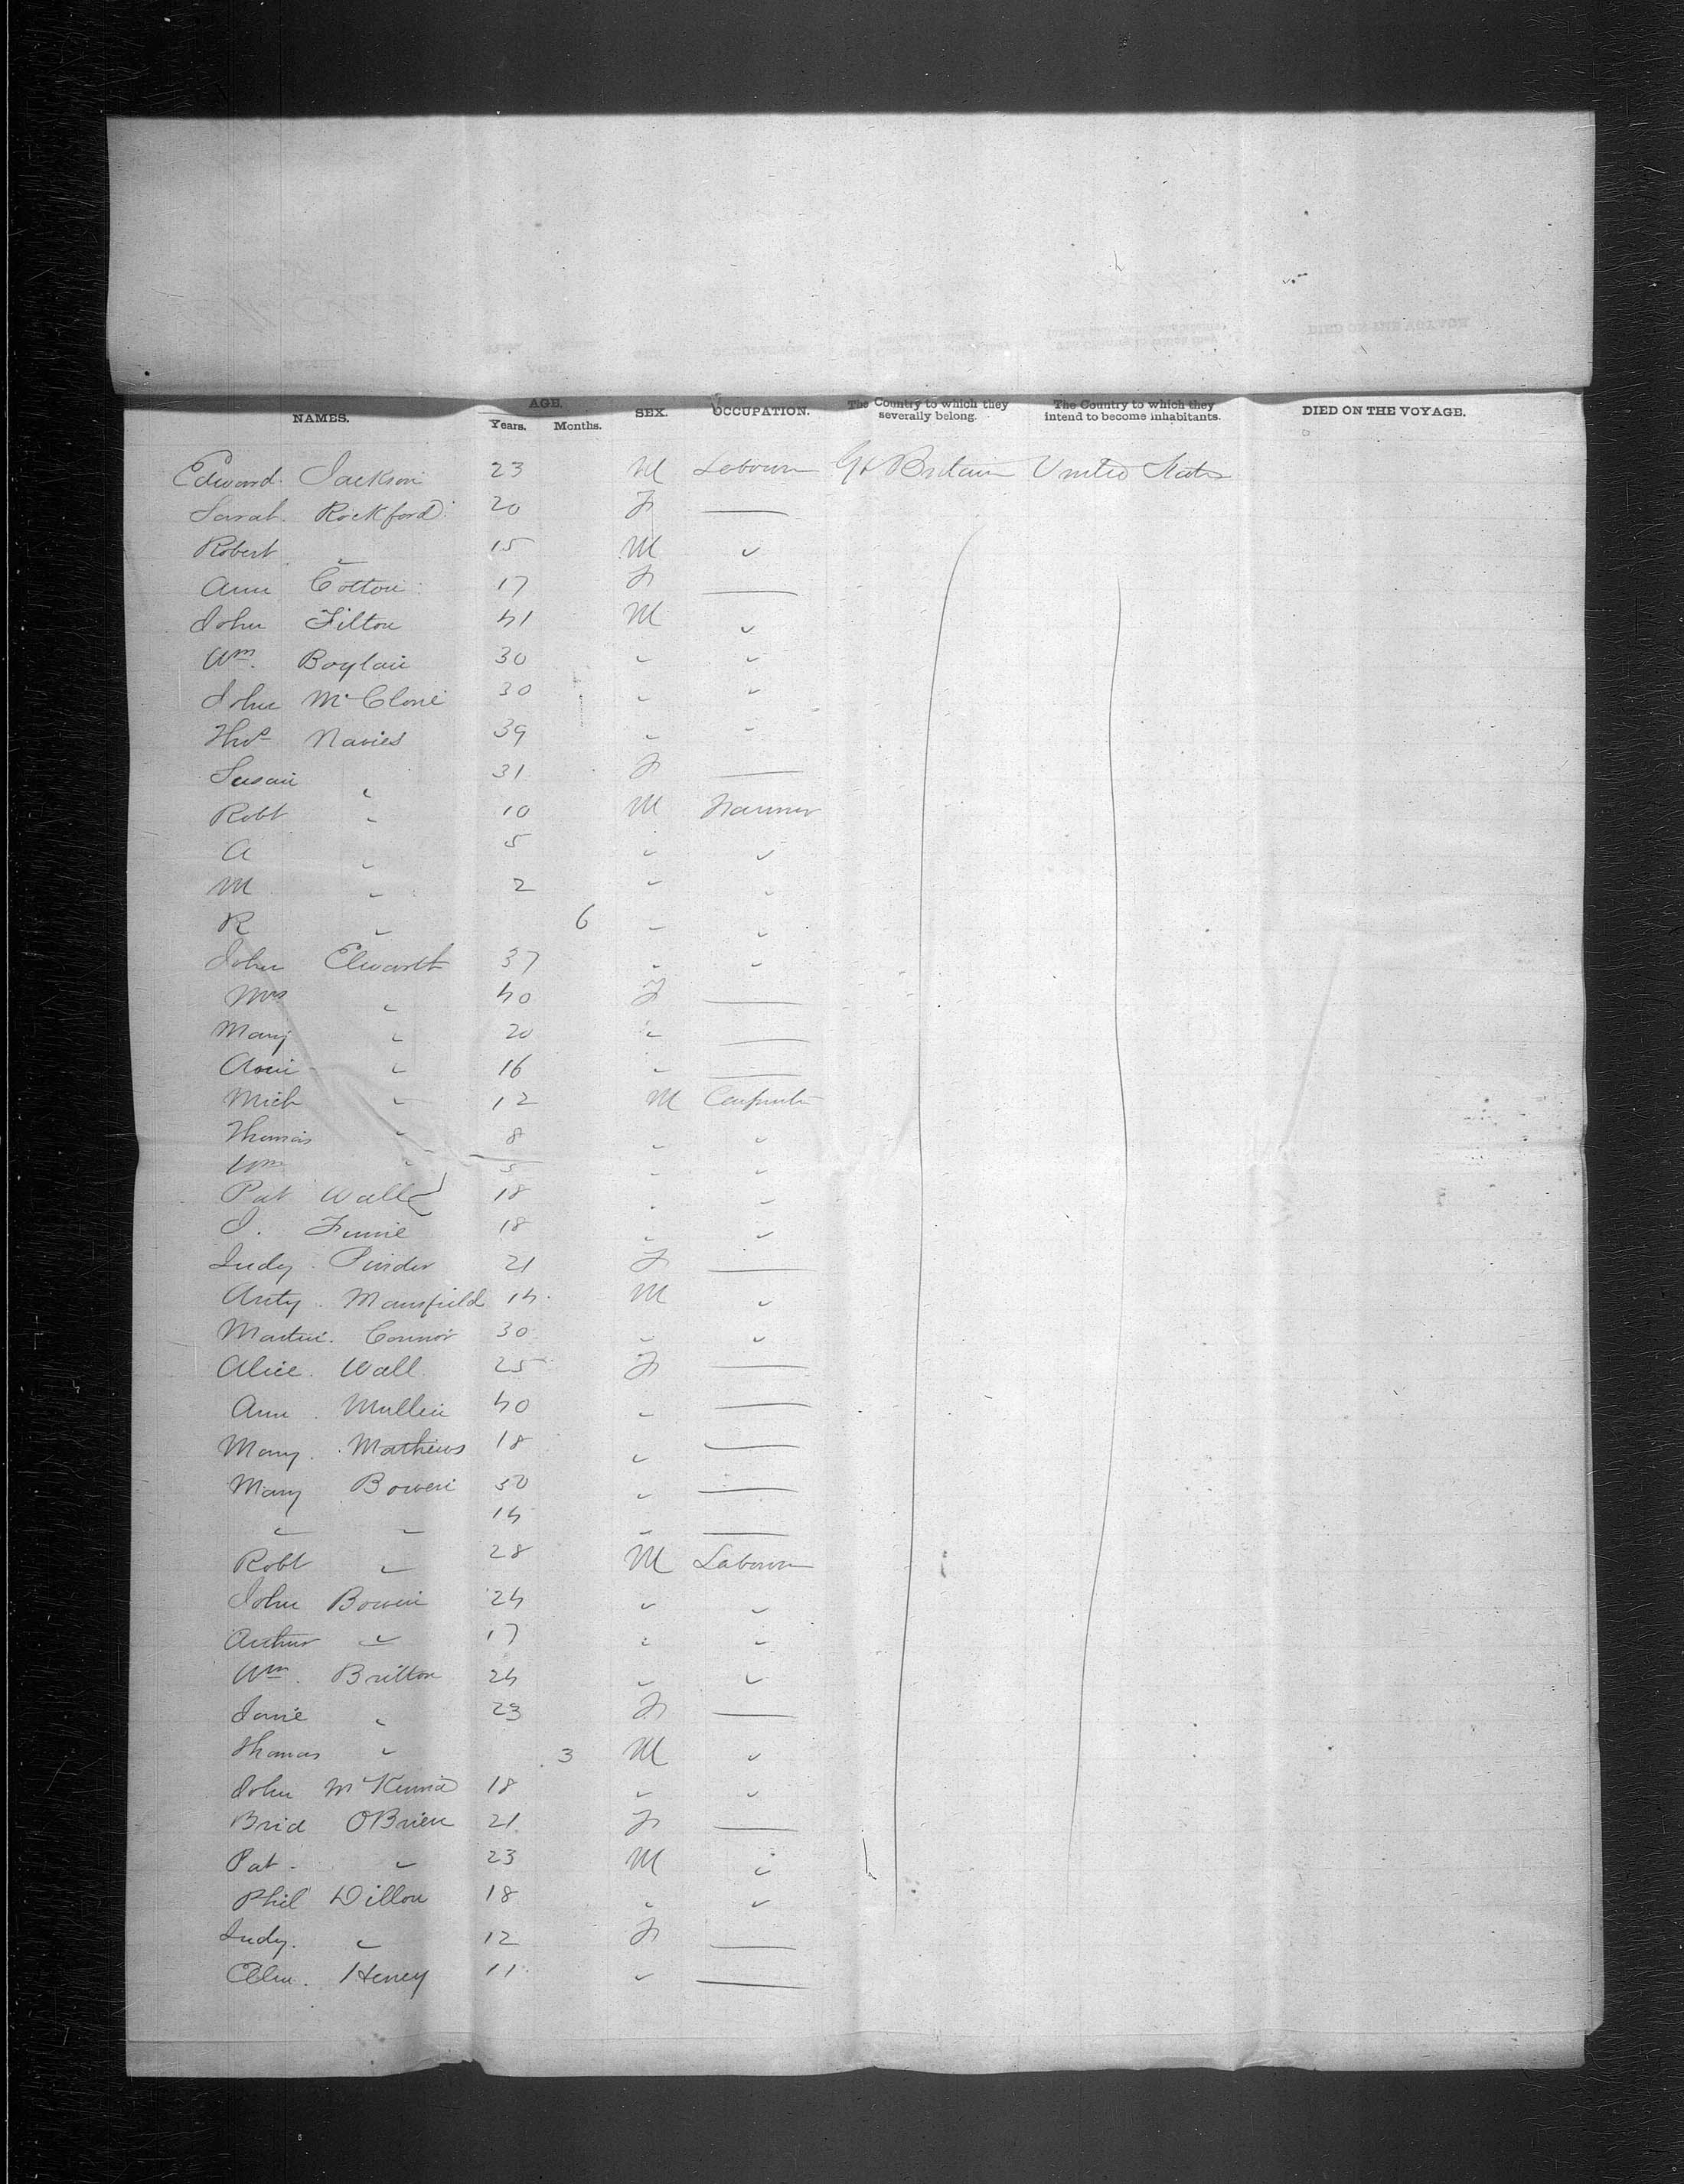 NAMES. AGE. Years. Months. SEX. OCCUPATION. The Country to which they severally belong. The Country to which they intend to become inhabitants. DIED ON THE VOYAGE.
Edward Jackson 23 M Labourer Gt Britain United States
Sarah Rockford 20 F —
Robert " 15 M "
Ann Cotton 17 F —
John Tilton 41 M "
Wm. Boylan 30 " "
John McClone 30 " "
Thos Navies 39 " "
Susan " 31 F —
Robt " 10 M Farmer
A " 5 " "
M " 2 " "
R " 6 " "
John Elwarth 37 " "
Mrs " 40 F —
Mary " 20 " —
Ann " 16 " —
Mich " 12 M Carpenter
Thomas " 8 " "
Wm " 5 " "
Pat Wall 18 " "
J. 18 " "
Judy Pinder 21 F —
Anty. Mansfield 14 M "
Martin. Connor 30 " "
Alice. Wall 25 F —
Ann. Mullen 40 " —
Mary. Mathews 18 " —
Mary Bowen 30 " —
" " 14 " —
Robt " 28 M Labourer
John Bowen 24 " "
Arthur " 17 " "
Wm. Britton 24 " "
Jane " 23 F —
Thomas " 3 M "
John McKenna 18 " "
Brid OBrien 21 F —
Pat " 23 M "
Phil Dillon 18 " "
Judy. " 12 F —
Ellen. Henry 11 " —